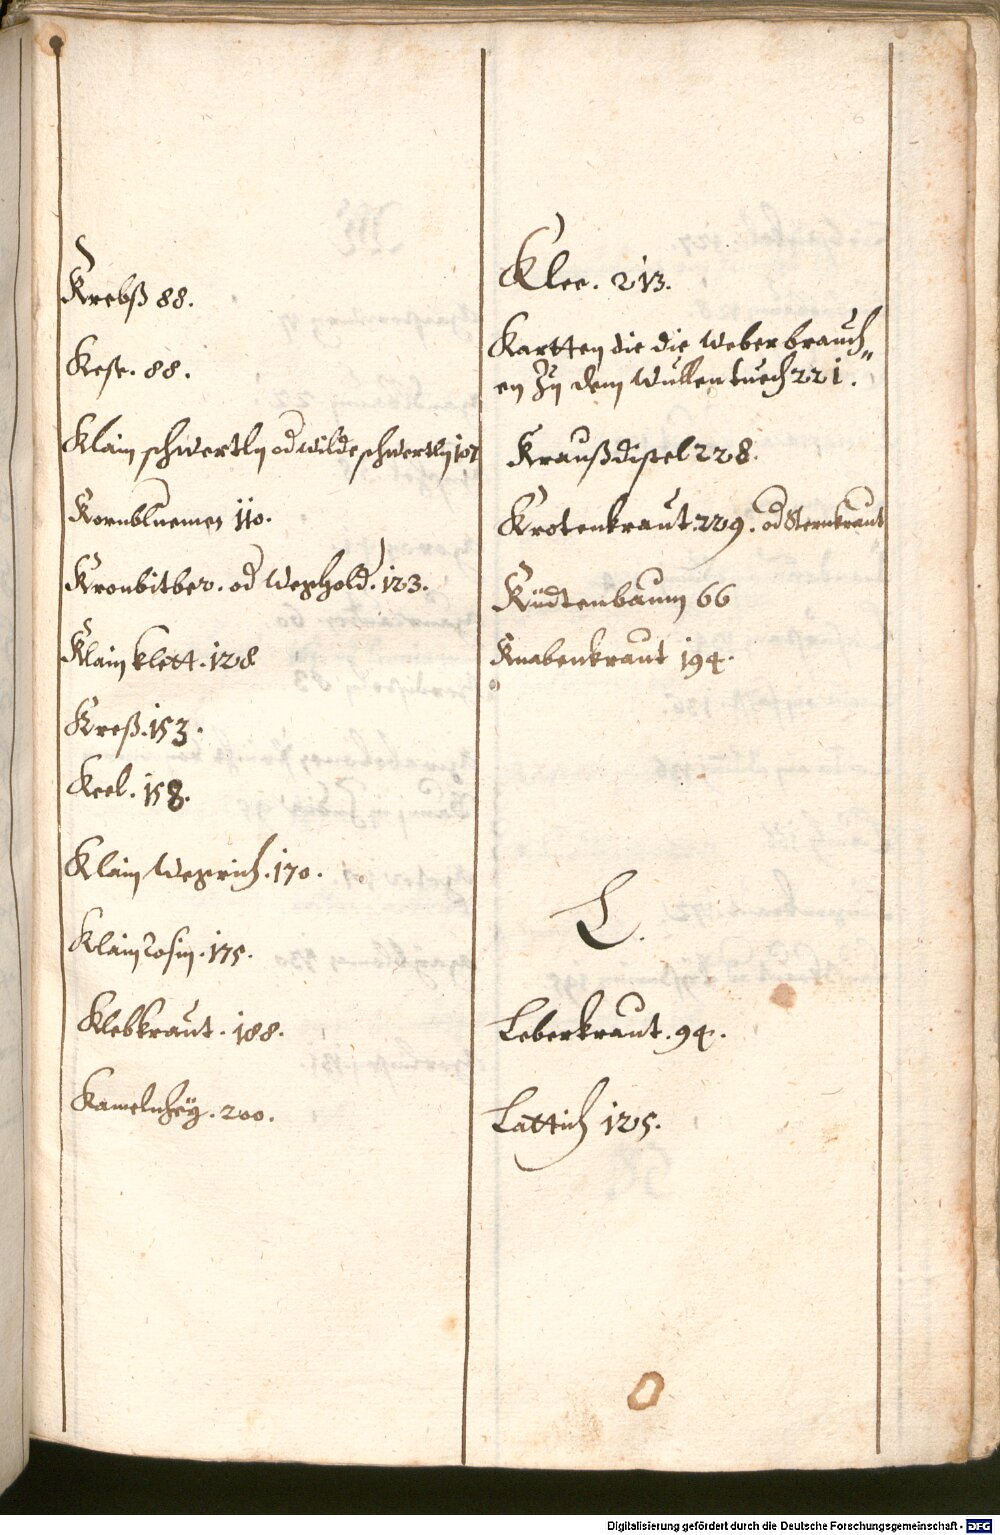 Krebß 88.
Kese. 88.
Klain schwertln od wilde schwertln 107
Kornbluemen 110.
Kronbitber. od Weghold. 123.
Klain klett. 128
Kreß. 153.
Keel. 158.
Klain Wegrich. 170.
Klain Rosin. 175.
Klebkraut. 188.
Kamelnheÿ. 200.
Klee. 213.
Kartten die die Weber brauch„
en Zu dem Wullen tuech 221.
Kraußdistel 228.
Krotenkraut. 229. od Sternkraut
Küdtenbaum 66
Knabenkraut 194.
L.
Leberkraut. 94.
Lattich 125.
Digitalisierung gefördert durch die Deutsche Forschungsgemeinschaft - DFG